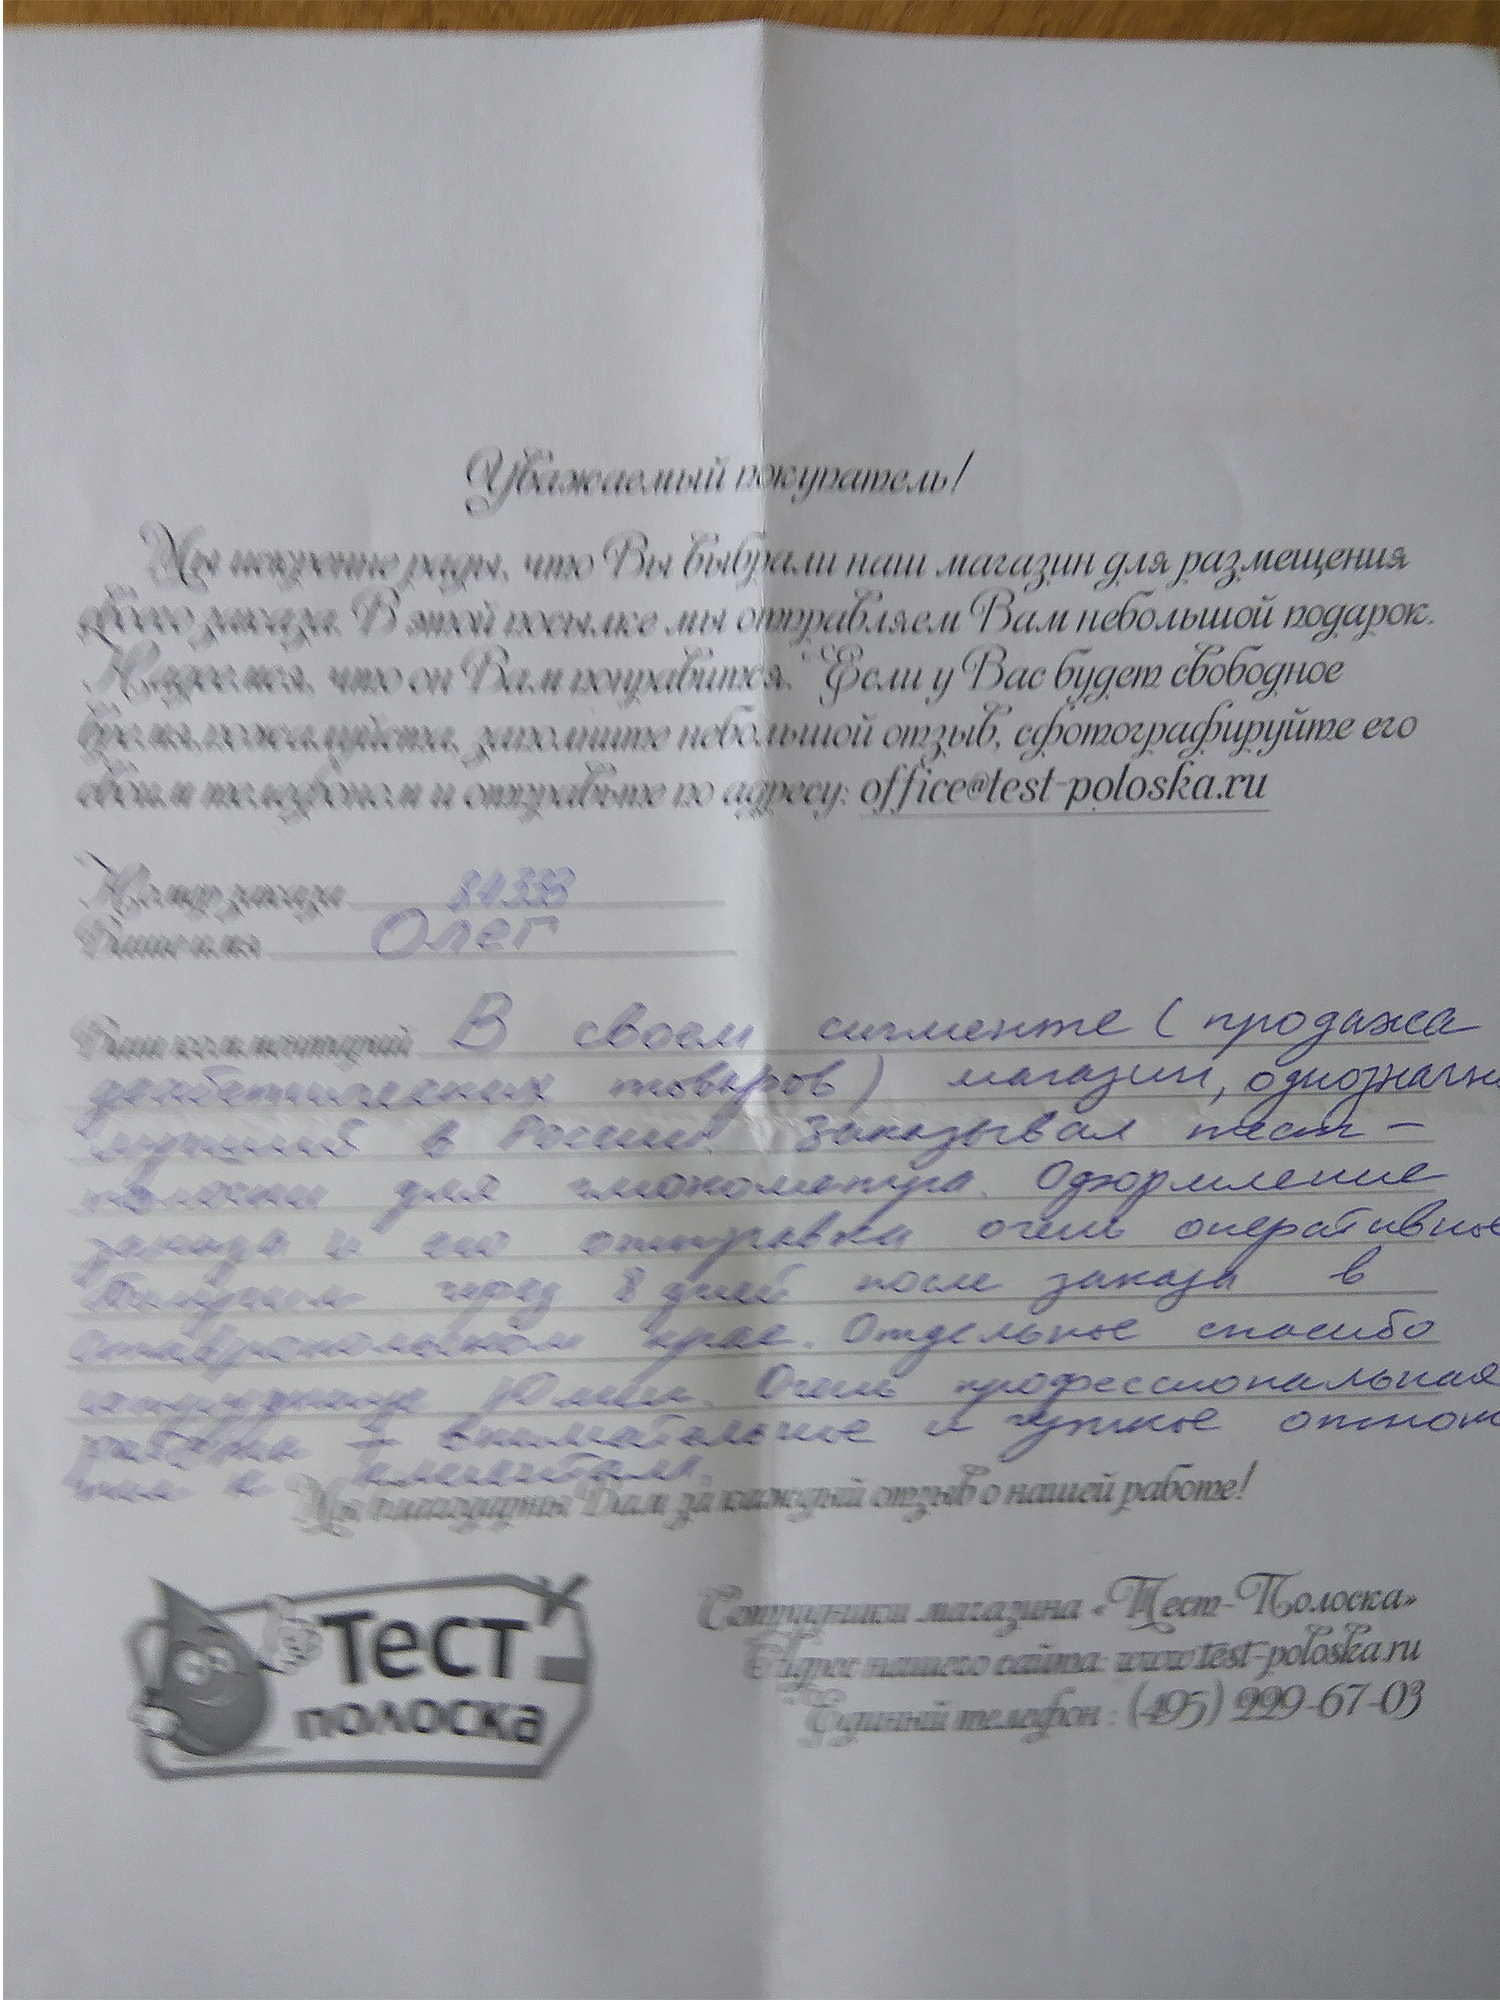 Уважаемый покупатель!
Мы искренне рады, что Вы выбрали наш магазин для размещения
своего заказа. В этой посылке мы отправляем Вам небольшой подарок.
Надеемся, что он Вам понравится. Если у Вас будет свободное
время, пожалуйста, заполните небольшой отзыв, сфотографируйте его
своим телефоном и отправьте по адресу: office@test-poloska.ru
Номер заказа
Ваше имя Олег
Ваш комментарий В своем сигменте (продажа
диабетических товаров) магазин, однозначно
лучший в России. Заказывал тест-
полоски для глюкометра. Оформление
заказа и его отправка очень оперативное
через 8 дней после заказа в
ставропольском крае. Отдельное спасибо
сотруднице Юлии. Очень профессиональная
работа внимательное и чуткое отноше
ние к клиентам.
Мы благодарны Вам за каждый отзыв о нашей работе!
Тест
полоска
Сотрудники магазина «Тест-Полоска»
Адрес нашего сайта: www.test-poloska.ru
Единый телефон: (495) 229-67-03